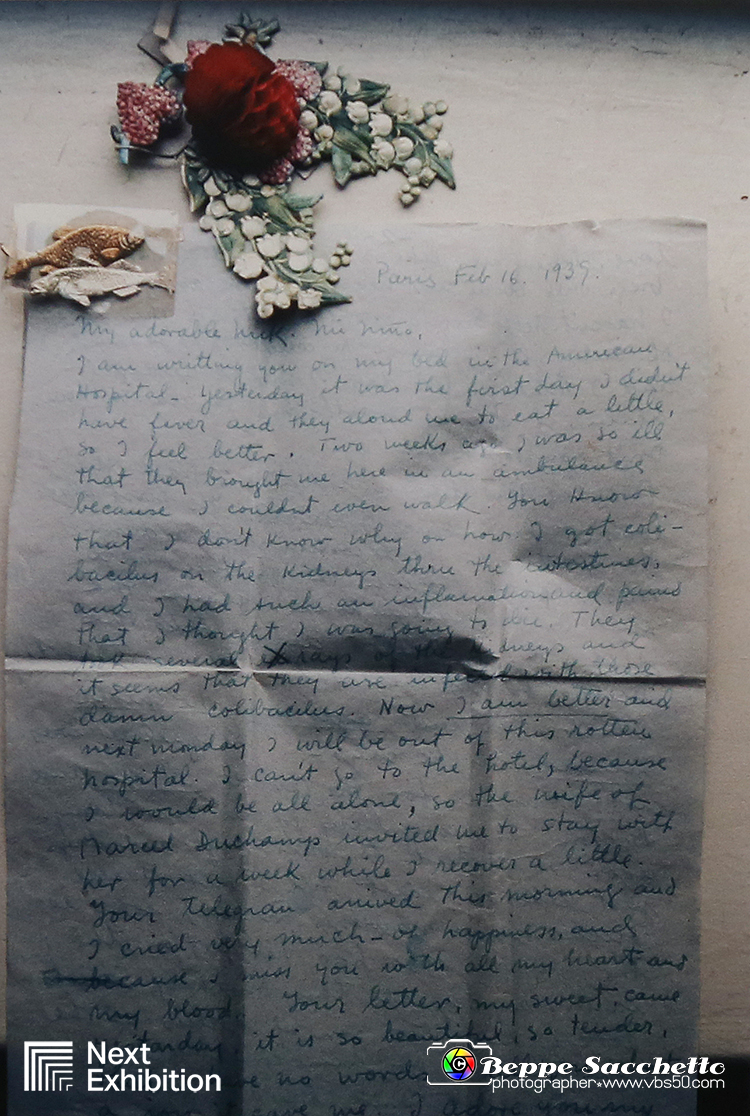 Paris Feb 16. 1939.
My adorable Nick. Mi Niño,
I am writting you on my bed in the American
Hospital. Yesterday it was the first day I didn't
have fever and they aloud me to eat a little,
so I feel better. Two weeks ago I was so ill
that they brought me here in an ambulance
because I couldnt even walk. You Know
that I don't know why or how I got coli-
bacilus on the Kidneys thru the intestines,
and I had such an inflamation and pains
that I thought I was going to die. They
several X rays of the kidneys and
it seems that they are infected with those
damn colibacilus. Now I am better and
next monday I will be out of this rotten
hospital. I can't go to the hotel, because
I would be all alone, so the wife of
Marcel Duchamps invited me to stay with
her for a week while I recover a little.
Your telegram arrived this morning and
I cried very much - of happiness, and
because I miss you with all my heart and
my blood. Your letter, my sweet, came
yesterday, it is so beautiful, so tender,
have no words
me. I
Next
Exhibition
©
Beppe Sacchetto
photographer•www.vbs50.com